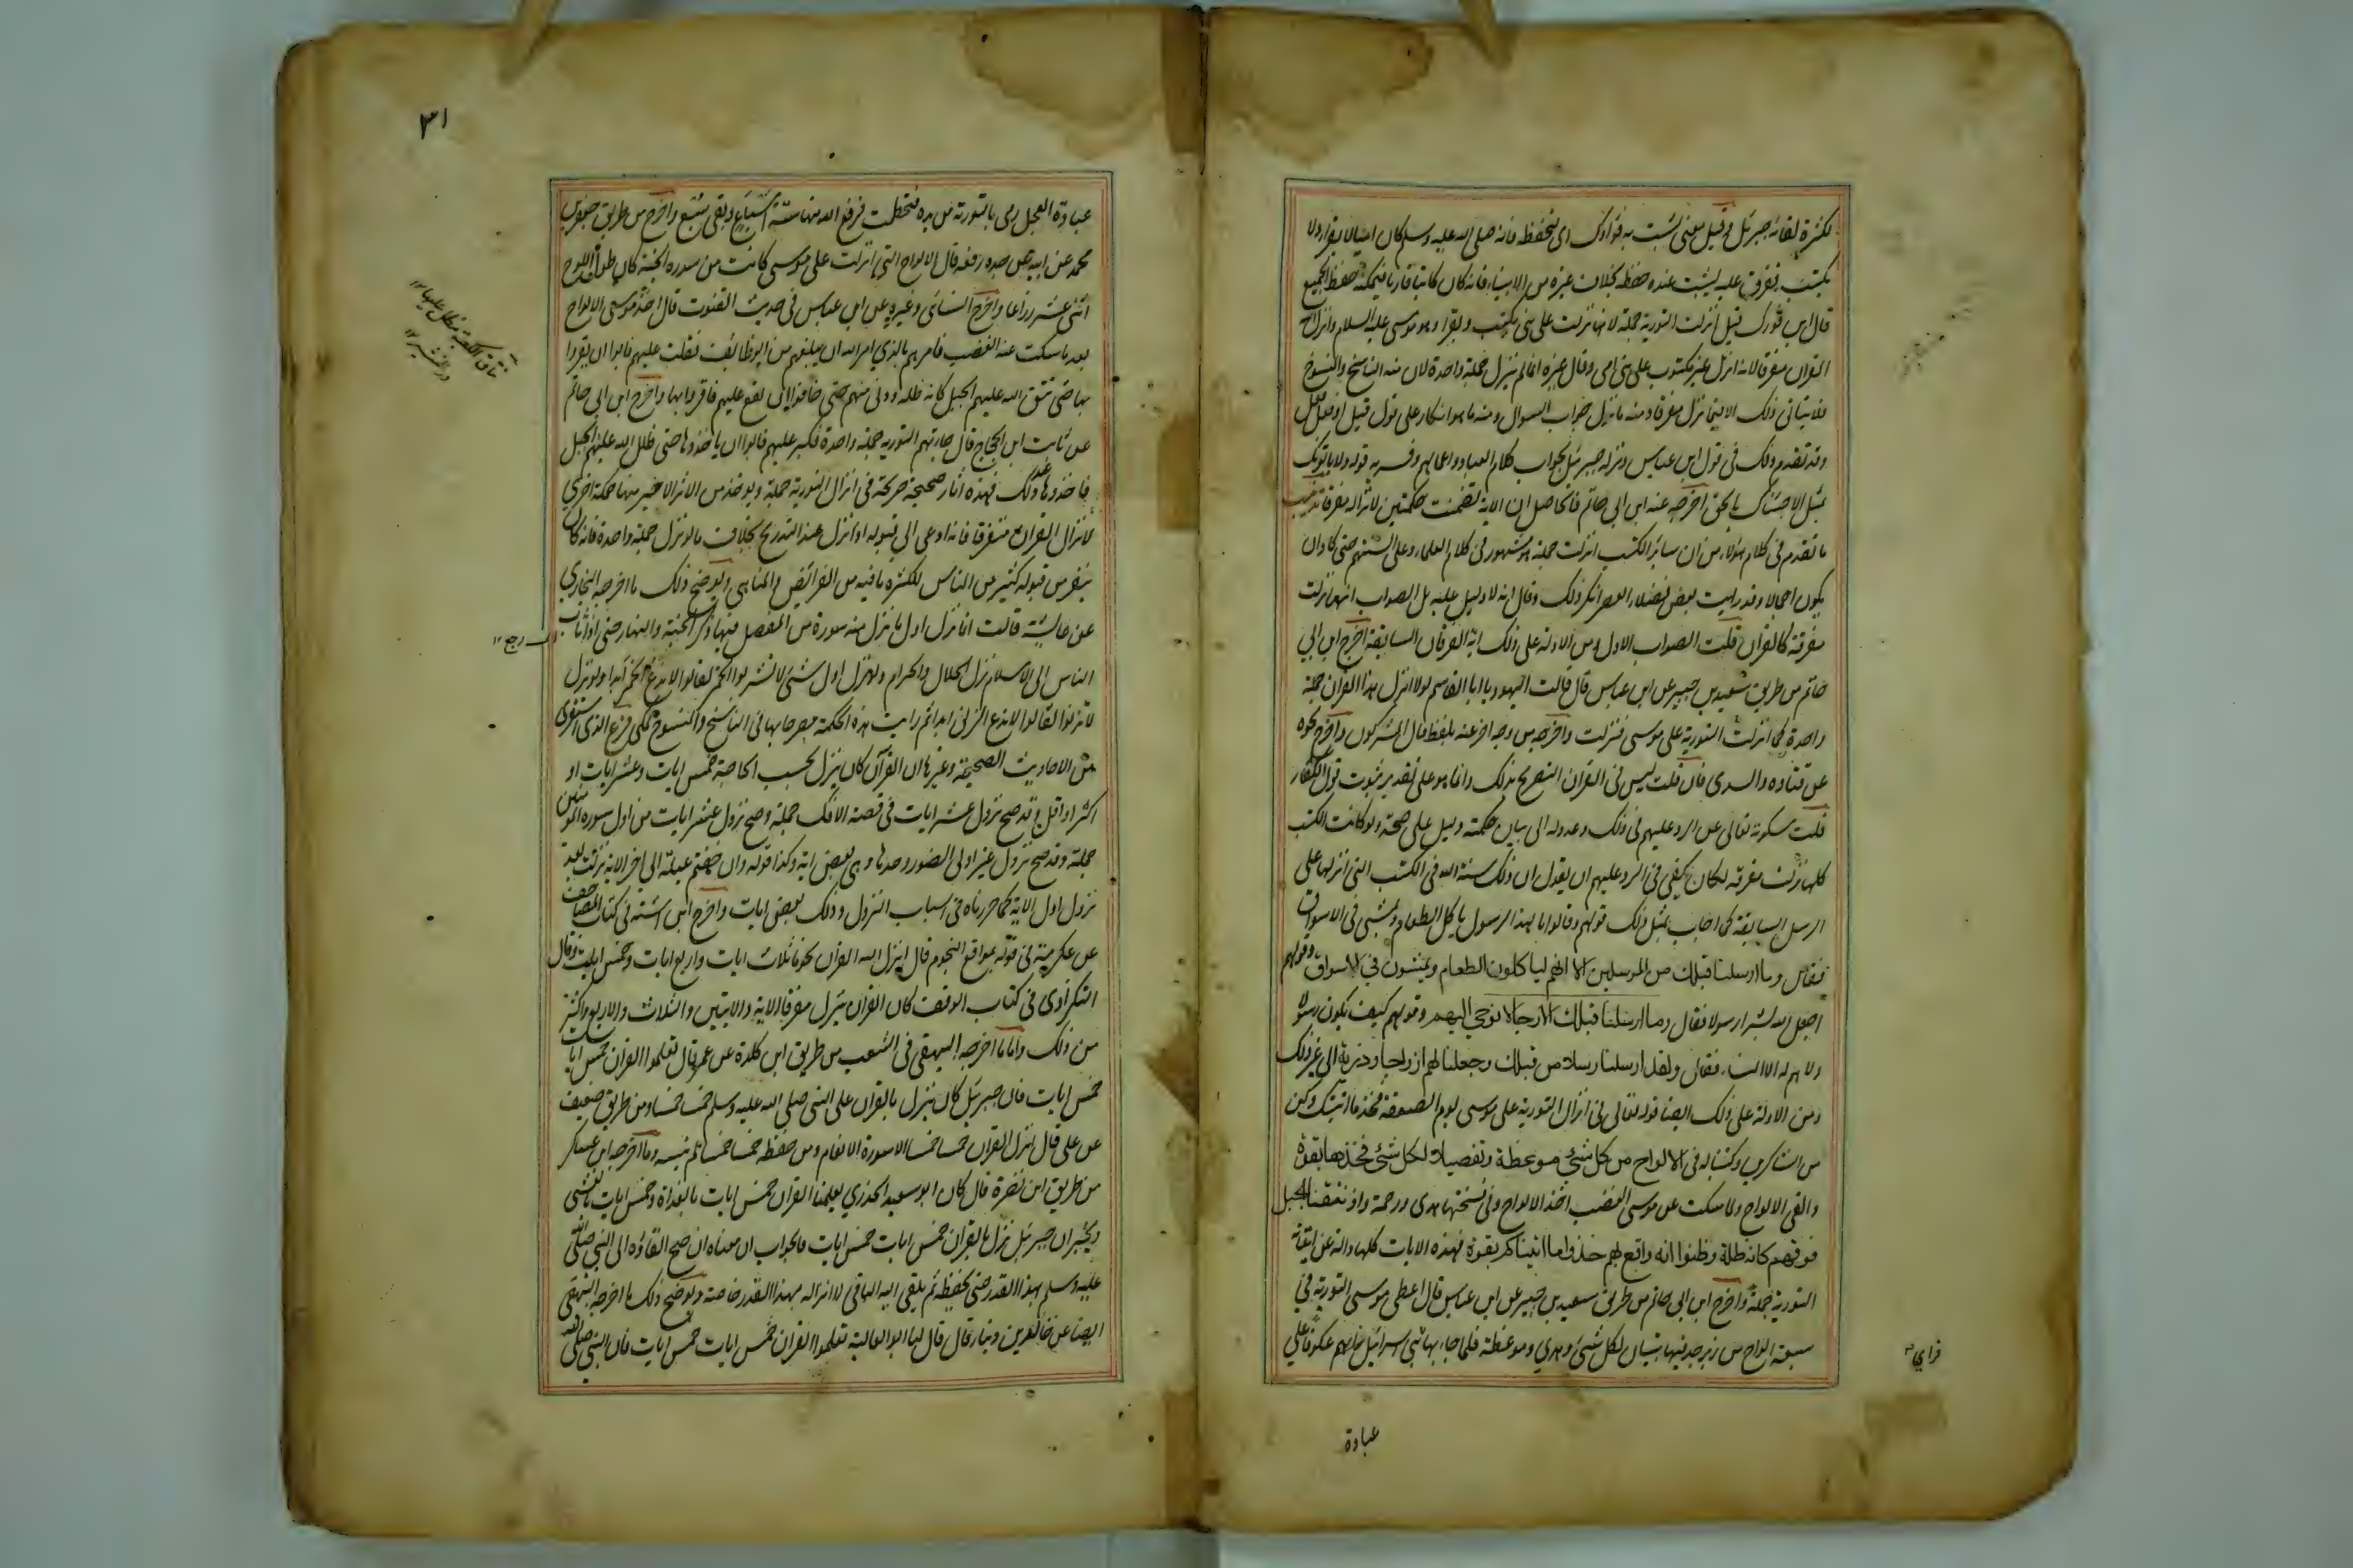 لكثرة لقائه جبرئل وقيل معنى لنثبت به فوادك اى لنحفظه فانه صلى الله عليه وسلم كان اميا لا يقرا ولا
يكتب ففرق عليه ليثبت عنده حفظه بخلاف غيره من الانبياء فانه كان كاتبا قاريا فيمكنه حفظ الجميع
قال ابن فورك قيل انزلت التورية جملة لانها نزلت على نبى يكتب ويقرا وهو موسى عليه السلام وانزل
القران مفرقا لانه انزل غير مكتوب على نبى امى وقال غيره انما لم ينزل جملة واحدة لان منه الناسخ والمنسوخ
فلا يتاتى ذلك الا فيما نزل مفرقا ومنه ما نزل جواب السوال ومنه ما هو انكار على قول قيل او فعل فعل
وقد تقدم ذلك فى قول ابن عباس ونزله جبرئيل بجواب كلام العباد واعمالهم وفسر به قوله ولا ياتونك
بمثل الا جئناك بالحق اخرجه عنه ابن ابى حاتم فالحاصل ان الاية تضمنت حكمتين لانزاله مفرقا تذنيب
ما تقدم فى كلام هؤلاء من ان سائر الكتب انزلت جملة هو مشهور فى كلام العلماء وعلى السنتهم حتى كاد ان
يكون اجماعا وقد رايت بعض فضلاء العصر انكر ذلك وقال انه لا دليل عليه بل الصواب انها نزلت
مفرقة كالقران قلت الصواب الاول ومن الادلة على ذلك اية الفرقان السابقة اخرج ابن ابى
حاتم من طريق سعيد بن جبير عن ابن عباس قال قالت اليهود يا ابا القاسم لولا انزل هذا القران جملة
واحدة كما انزلت التورية على موسى فنزلت واخرجه من وجه اخر عنه بلفظ قال المشركون واخرج نحوه
عن قتاده والسدى فان قلت ليس فى القران التصريح بذلك وانما هو على تقدير ثبوت قول الكفار
قلت سكوته تعالى عن الرد عليهم فى ذلك وعدوله الى بيان حكمته دليل على صحته ولو كانت الكتب
كلها نزلت مفرقة لكان يكفى فى الرد عليهم ان يقول ان ذلك سنة الله فى الكتب التى انزلها على
الرسل السابقة كما اجاب بمثل ذلك قولهم وقالوا ما لهذا الرسول ياكل الطعام ويمشى فى الاسواق
فقال وما ارسلنا قبلك من المرسلين الا انهم لياكلون الطعام ويمشون في الاسواق وقولهم
ابعث الله بشرا رسولا فقال وما ارسلنا قبلك الا رجالا نوحي اليهم وقولهم كيف يكون رسولا
ولا هم له الا النساء فقال ولقد ارسلنا رسلا من قبلك وجعلنا لهم ازواجا وذرية الى غير ذلك
ومن الادلة على ذلك ايضا قوله تعالى فى انزال التورية على موسى يوم الصعقة فخذ ما اتيتك وكن
من الشاكرين وكتبنا له فى الالواح من كل شئ موعظة وتفصيلا لكل شئ فخذها بقوة
والقى الالواح ولما سكت عن موسى الغضب اخذ الالواح وفى نسختها هدى ورحمة واذ نتقنا الجبل
فوقهم كانه ظلة وظنوا انه واقع بهم خذوا ما اتيناكم بقوة فهذه الايات كلها دالة على اتيانه
التورية جملة واخرج ابن ابى حاتم من طريق سعيد بن جبير عن ابن عباس قال اعطى موسى التورية فى
سبعة الواح من زبرجد فيها تبيان لكل شئ وهدى وموعظة فلما جاء بها بنى اسرائيل عكوفا على
فراى
عبادة
٣١
عبادة العجل رمى بالتورية من يده فتحطمت فرفع الله منها ستة اسباع وبقى سبع واخرج من طريق جعفر بن
محمد عن ابيه عن جده رفعه قال الالواح التى انزلت على موسى كانت من سدره الجنة كان طول اللوح
اثنى عشر ذراعا واخرج النسائى وغيره عن ابن عباس فى حديث الفتون قال اخذ موسى الالواح
بعد ما سكت عنه الغضب فامرهم بالذي امر الله ان يبلغهم من الوظائف فثقلت عليهم فابوا ان يقروا
بها حتى نتق الله عليهم الجبل كانه ظلة ودنى منهم حتى خافوا ان يقع عليهم فاقروا بها واخرج ابن ابى حاتم
عن ثابت ابن الحجاج قال جاءتهم التورية جملة واحدة فكبر عليهم فابوا ان ياخذوها حتى ظلل الله عليهم الجبل
فاخذوها عند ذلك فهذه اثار صحيحة صريحة فى انزال التورية جملة ويوخذ من الاثر الاخير منها حكمة اخرى
لانزال القران متفرقا فانه ادعى الى قبوله اذا نزل على التدريج بخلاف ما لو نزل جملة واحدة فانه كان
ينفر من قبوله كثير من الناس لكثره ما فيه من الفرائض والمناهى ويوضح ذلك ما اخرجه البخارى
عن عائشة قالت انما نزل اول ما نزل منه سورة من المفصل فيها ذكر الجنة والنار حتى اذا ثاب
الناس الى الاسلام نزل الحلال والحرام ولو نزل اول شئ لا تشربوا الخمر لقالوا لا ندع الخمر ابدا ولو نزل
لا تزنوا لقالوا لا ندع الزنى ابدا ثم رايت هذه الحكمة مصرحا بها فى الناسخ والمنسوخ لمكى فرع الذى استقرى
من الاحاديث الصحيحة وغيرها ان القرآن كان ينزل بحسب الحاجة خمس ايات وعشر ايات او
اكثر او اقل وقد صح نزول عشر ايات فى قصة الافك جملة وصح نزول عشر ايات من اول سوره المومنين
جملة وقد صح نزول غير اولى الضرر وحدها وهى بعض اية وكذا قوله وان خفتم عيلة الى اخر الاية نزلت بعد
نزول اول الاية كما حررناه فى اسباب النزول وذلك بعض ايات واخرج ابن اشته فى كتاب المصاحف
عن عكرمة فى قوله بمواقع النجوم قال انزل الله القران نجوما ثلاث ايات واربع ايات وخمس ايات وقال
النكزاوى فى كتاب الوقف كان القران ينزل مفرقا الاية والايتين والثلاث والاربع واكثر
من ذلك واما ما اخرجه البيهقى فى الشعب من طريق ابى خلدة عن عمر قال تعلموا القران خمس ايات
خمس ايات فان جبرئيل كان ينزل بالقران على النبى صلى الله عليه وسلم خمسا خمسا ومن طريق ضعيف
عن على قال انزل القران خمسا خمسا الا سورة الانعام ومن حفظه خمسا خمسا لم ينسه وما اخرجه ابن عساكر
من طريق ابى نضرة قال كان ابو سعيد الخدري يعلمنا القران خمس ايات بالغداة وخمس ايات بالعشى
ويخبر ان جبرئيل نزل بالقران خمس ايات خمس ايات فالجواب ان معناه ان صح القاؤه الى النبى صلى الله
عليه وسلم بهذا القدر حتى يحفظه ثم يلقى اليه الباقى لا انزاله بهذا القدر خاصة ويوضح ذلك ما اخرجه البيهقى
ايضا عن خالد بن دينار قال قال لنا ابو العالية تعلموا القران خمس ايات خمس ايات فان النبى صلى الله